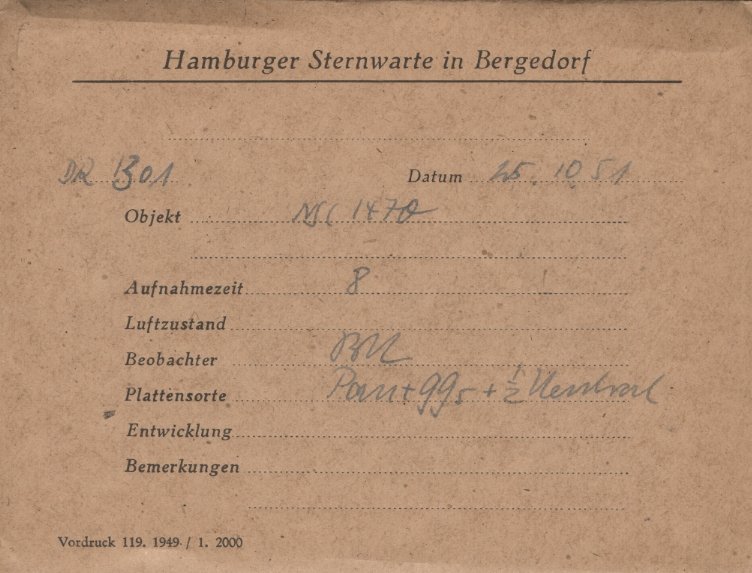 Hamburger Sternwarte in Bergedorf
DR 1301 Datum 25. 10. 51
Objekt NGC 1470
Aufnahmezeit 8
Luftzustand
Beobachter
Plattensorte Pan + 99 + ½
Entwicklung
Bemerkungen
Vordruck 119. 1949 / 1. 2000